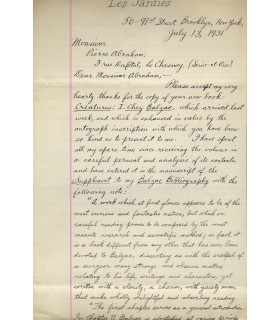 Les Jardies
50-91st Street Brooklyn, New York,
July 13, 1931
Monsieur
Pierre Abraham,
3 rue Rafital, Le Chesnay, (Seine et Oise)
Dear Monsieur Abraham, —
Please accept my very
hearty thanks for the copy of your new book
Créatures: I. Chez Balzac, which arrived last
week, and which is enhanced in value by the
autograph inscription with which you have been
so kind as to present it to me. I have spent
all my spare time since receiving the volume in
a careful perusal and analysis of its contents
and have entered it in the manuscript of the
Supplement to my Balzac Bibliography with the
following note:
"A work which at first glance appears to be of the
most curious and fantastic nature, but which on
careful reading proves to be inspired by the most
minute research and scientific method; in fact, it
is a book different from any other that has ever been
devoted to Balzac, discussing as with the scalpel of
a surgeon many strange and obscure matters
relating to his life, writings and characters, yet
written with a clarity, a charm, with gaiety even
that make wholly delightful and absorbing reading.
"The first chapter serves as a general introduction.
In Chapter II Balzac is